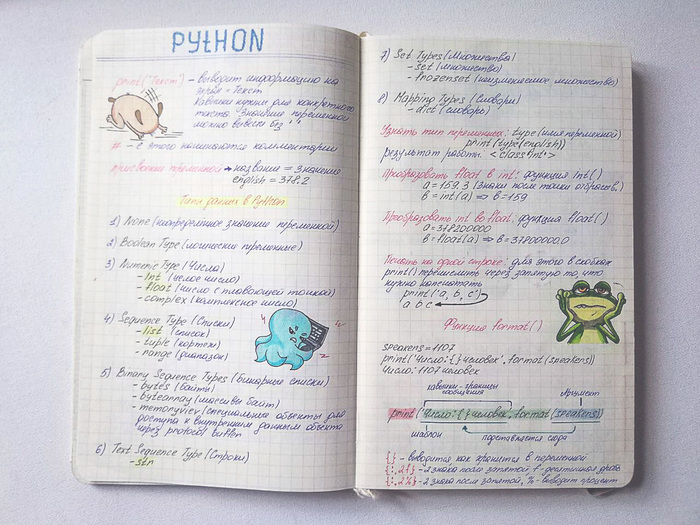 PYTHON
print("Текст") - выводит информацию на
экран - Текст
Кавычки нужны для конкретного
текста. Значение переменной
можно вывести без " "
# - с этого начинаются комментарии
присвоение переменной → название = значение
english = 378.2
Типы данных в Python
1) None (неопределенное значение переменной)
2) Boolean Type (логические переменные)
3) Numeric Type (Числа)
- int (целое число)
- float (число с плавающей точкой)
- complex (комплексное число)
4) Sequence Type (Списки)
- list (список)
- tuple (кортеж)
- range (диапазон)
5) Binary Sequence Types (Бинарные списки)
- bytes (байты)
- bytearray (массивы байт)
- memoryview (специальные объекты для
доступа к внутренним данным объекта
через protocol buffer
6) Text Sequence Type (Строки)
- str
7) Set Types (Множества)
- set (множество)
- frozenset (неизменяемое множество)
8) Mapping Types (Словари)
- dict (словарь)
Узнать тип переменных: type (имя переменной)
print (type(english))
результат работы: <class 'int'>
Преобразовать float в int: функция int()
a = 159.3 (знаки после точки отбросив.)
b = int(a) ⇒ b = 159
Преобразовать int во float: функция float()
a = 378200000
b = float(a) ⇒ b = 37800000.0
Печать на одной строке: для этого в скобках
print() перечислить через запятую то что
нужно напечатать
print('a, b, c')
a b c
Функция format()
speakers = 1107
print('Число: {} человек'.format(speakers))
Число: 1107 человек
кавычки - границы
сообщения
аргумент
print('Число: {} человек'.format(speakers))
шаблон
подставляется сюда
{} - выводится как хранится в переменной
{:.2f} - 2 знака после запятой, f - десятичная дробь
{:.2%} - 2 знака после запятой, % - выводит процент